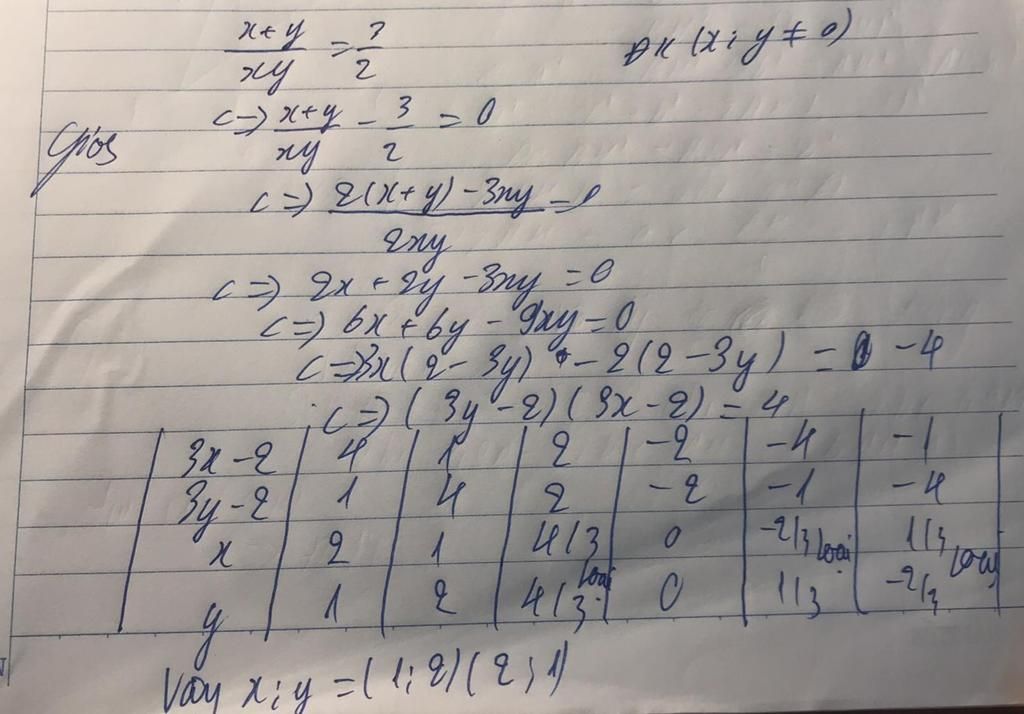 (x+y)/(xy) = 3/2 ĐK (x; y ≠ 0)
Giải
<=> (x+y)/(xy) - 3/2 = 0
<=> (2(x+y) - 3xy)/(2xy) = 0
<=> 2x + 2y - 3xy = 0
<=> 6x + 6y - 9xy = 0
<=> 3x(2 - 3y) - 2(2 - 3y) = -4
<=> (3y - 2)(3x - 2) = 4
3x-2 | 4 | 1 | 2 | -2 | -4 | -1
3y-2 | 1 | 4 | 2 | -2 | -1 | -4
x | 2 | 1 | 4/3 loại | 0 | -2/3 loại | 1/3 loại
y | 1 | 2 | 4/3 | 0 | 1/3 | -2/3
Vậy x; y = (1; 2) (2; 1)